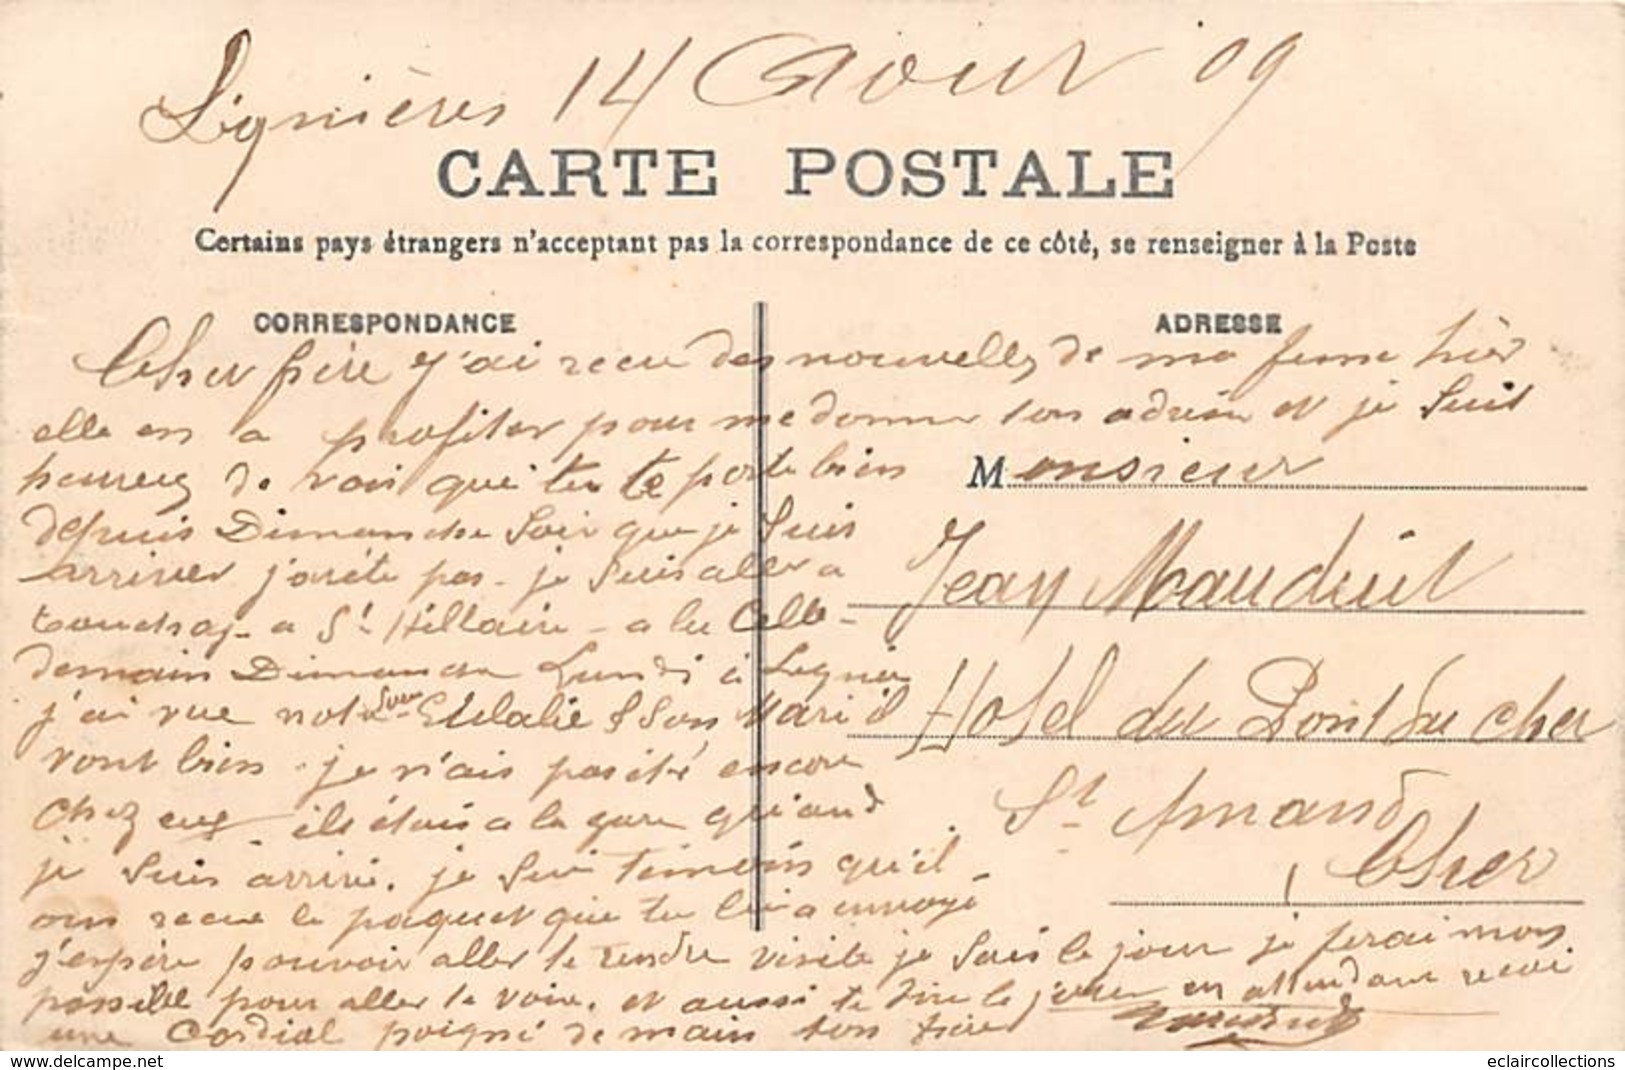 Lignières 14 Aout 09
CARTE POSTALE
Certains pays étrangers n'acceptant pas la correspondance de ce côté, se renseigner à la Poste
CORRESPONDANCE
ADRESSE
Cher frère j'ai recu des nouvelles de ma feme hièr
elle en a profiter pour me donner ton adrèse et je suis
heureux de voir que tu te porte bien
depuis Dimanche Soir que je suis
arriver j'arête pas - je suis aller a
touchay - a St Hillaire - a la Celle -
demain Dimanche Lundi à Lignière
j'ai vue notre Soeur Eulalie & Son Mari il
vont bien - je n'ais pas été encore
chez eux ils étais a la gare quand
je suis arrivé. je sui témoins qu'il
ons recue le paquet que tu lui a envoyé -
j'espère pouvoir aller te rendre visite je sais le jour je ferai mon
possible pour aller te voir. et aussi te dire le jour en attendant recoi
une Cordial poigné de main ton frère
Monsieur
Jean Mauduit
Hotel du Pont du Cher
St Amand
Cher
eclaircollections